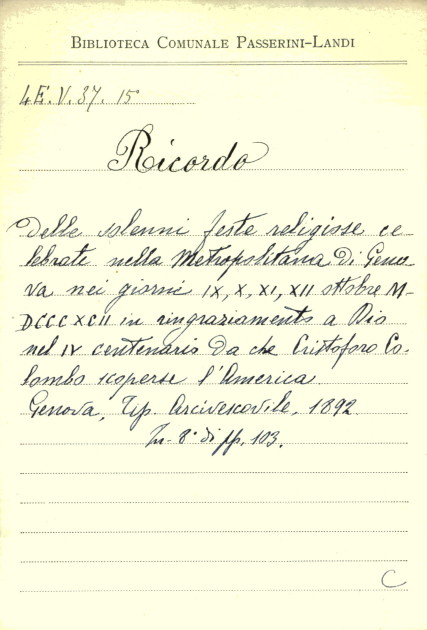 BIBLIOTECA COMUNALE PASSERINI-LANDI
4E.V.37.15°
Ricordo
Delle solenni feste religiose ce-
lebrate nella Metropolitana di Geno-
va nei giorni IX, X, XI, XII ottobre M-
DCCCXCII in ringraziamento a Dio
nel IV centenario da che Cristoforo Co-
lombo scoperse l'America
Genova, Tip. Arcivescovile, 1892
In-8° di pp. 103.
C